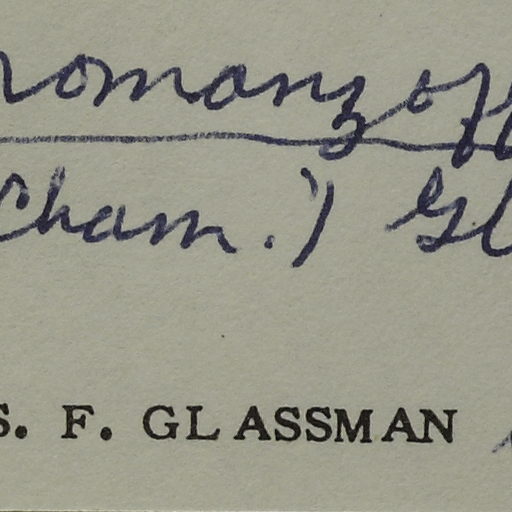 romanzoff
Cham.) Gl
S. F. GLASSMAN